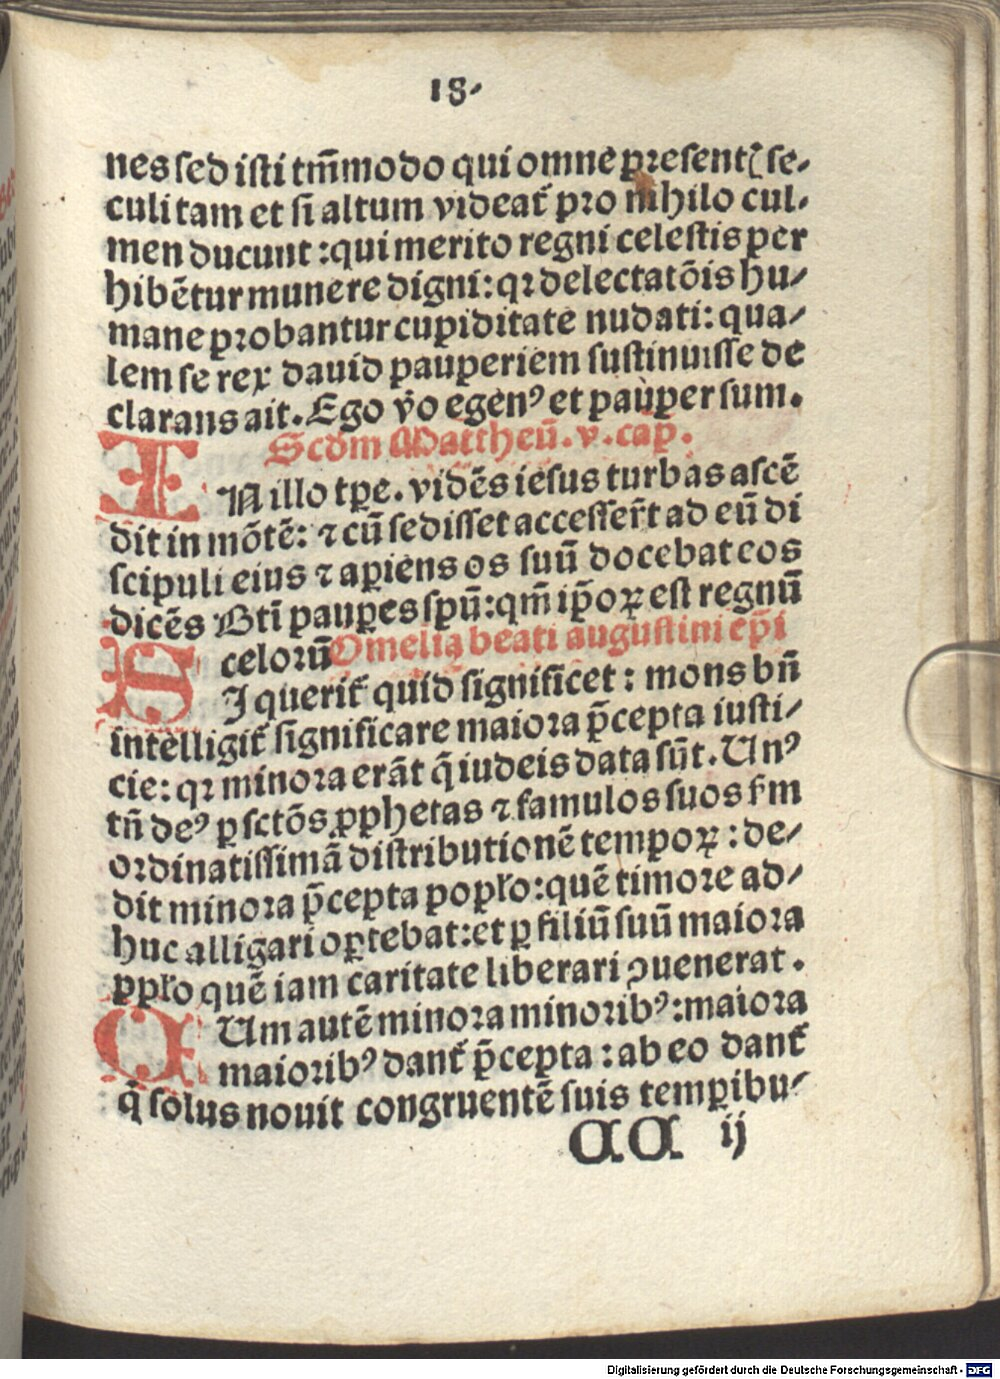 18.
nes sed isti tm̄modo qui omne p̲resentꝭ se⸗
culi tam et si altum videat᷑ pro nihilo cul⸗
men ducunt : qui merito regni celestis per
hibēt᷑ur munere digni: qꝛ delectatōis hu⸗
mane probantur cupiditate nudati: qua⸗
lem se rex dauid pauperiem sustinuisse de
clarans ait. Ego v̄o egenꝰ et pauper sum.
Scd̄m Mattheū. v. cap̄.
IN illo tp̄e. vidēs iesus turbas ascē
dit in mōtē: ⁊ cū sedisset accesser̄t ad eū di
scipuli eius ⁊ apiens os suū docebat eos
dicēs Bt̄i paup̲es sp̄ū: qm̄ ip̄oꝝ est regnū
celorū Omelia beati augustini ep̄i
SI querit᷑ quid significet : mons bn̄
intelligit᷑ significare maiora p̄cepta iusti⸗
cie: qꝛ minora erāt q̄ iudeis data sūt. Unꝰ
tn̄ deꝰ ꝑ sctōs ꝓphetas ⁊ famulos suos ẜm
ordinatissimā distributionē tempoꝝ : de⸗
dit minora p̄cepta popl̄o: quē timore ad⸗
huc alligari oꝑtebat: et ꝑ filiū suū maiora
ppl̄o quē iam caritate liberari ꝯuenerat.
QUm autē minora minoribꝰ: maiora
maioribꝰ dant᷑ p̄cepta : ab eo dant᷑
q̄ solus nouit congruentē suis tempibu⸗
AA ij
Digitalisierung gefördert durch die Deutsche Forschungsgemeinschaft - DFG